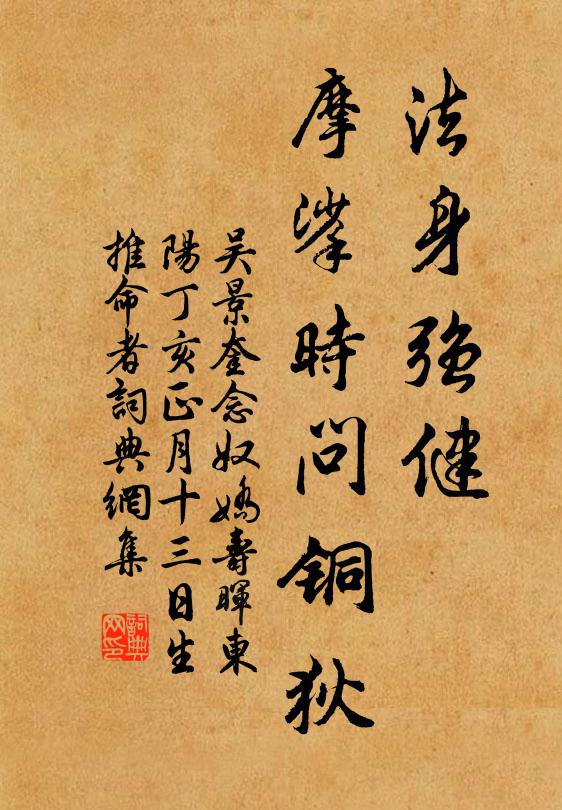 法身強健
摩挲時問銅狄
吴景奎念奴嬌壽暉東
陽丁亥正月十三日生
推命者詞典網集
詞典网印